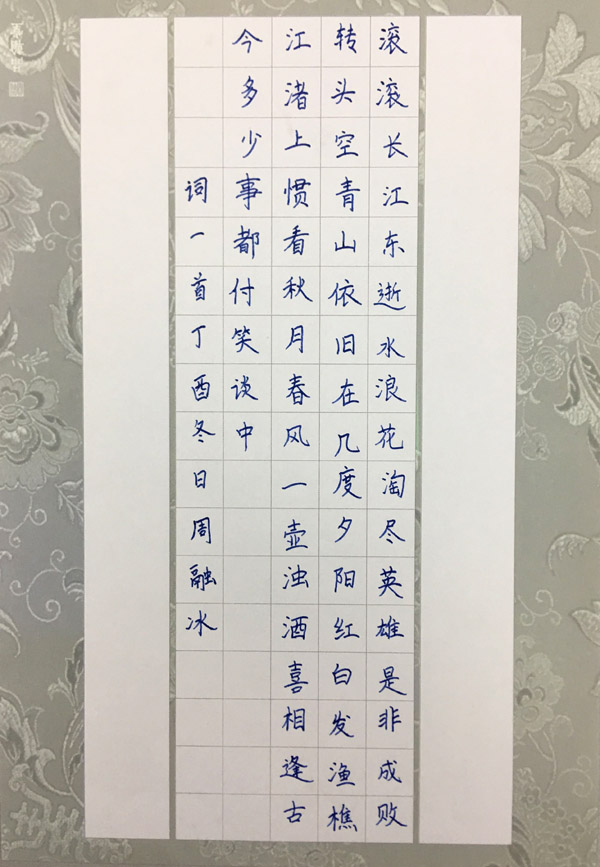 滚滚长江东逝水浪花淘尽英雄是非成败
转头空青山依旧在几度夕阳红白发渔樵
江渚上惯看秋月春风一壶浊酒喜相逢古
今多少事都付笑谈中
词一首丁酉冬日周融冰